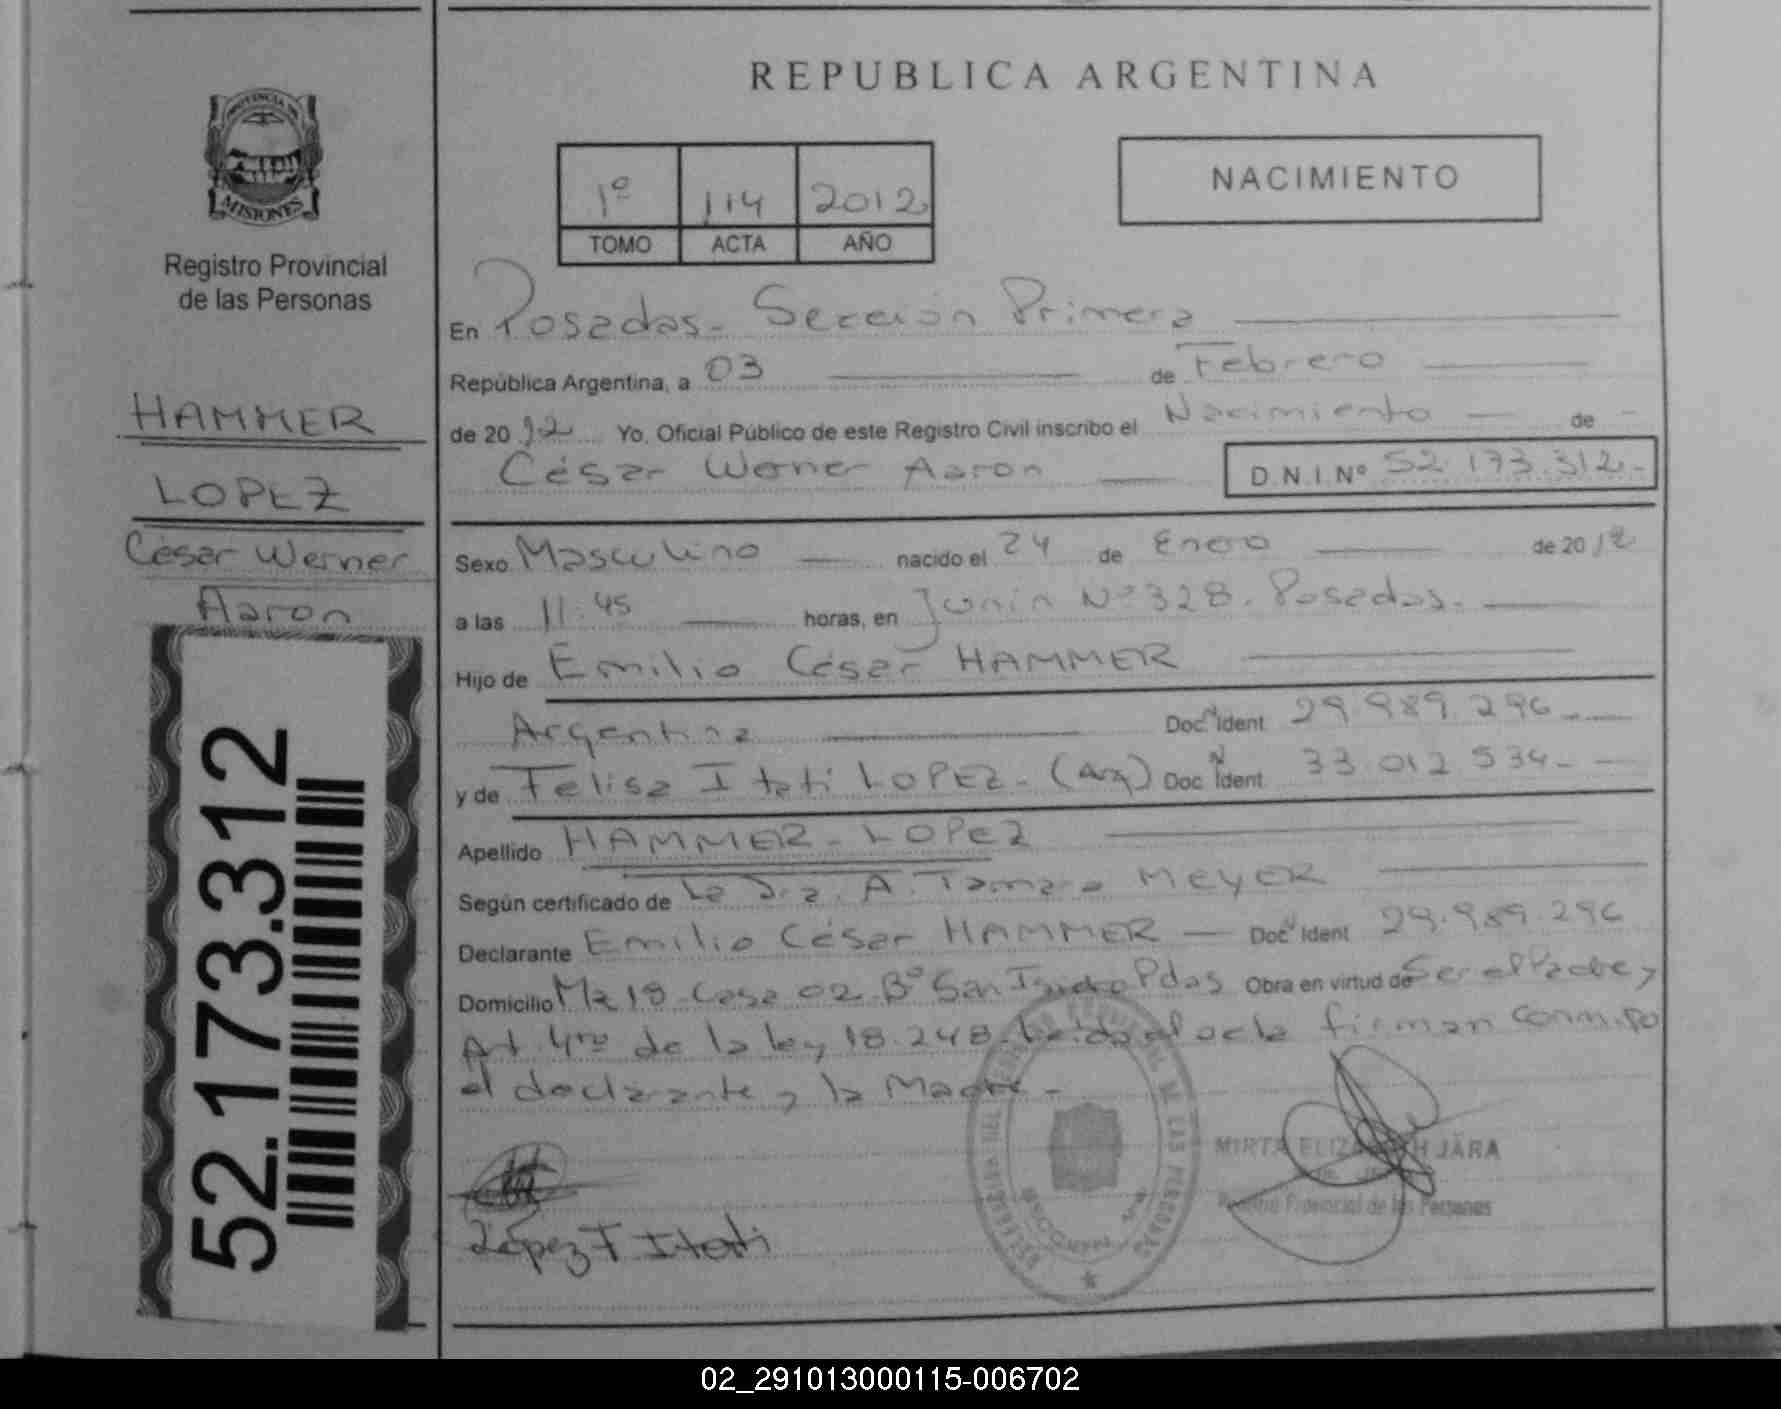 REPUBLICA ARGENTINA
PROVINCIA DE
MISIONES
Registro Provincial
de las Personas
HAMMER
LOPEZ
César Werner
Aaron
52.173.312
1º 114 2012
TOMO ACTA AÑO
NACIMIENTO
En Posadas - Sección Primera
República Argentina, a 03 de Febrero
de 2012 Yo, Oficial Público de este Registro Civil inscribo el Nacimiento — de -
César Werner Aaron — D.N.I. Nº 52.173.312.-
Sexo Masculino — nacido el 24 de Enero — de 2012
a las 11:45 — horas, en Junín Nº 328. Posadas. —
Hijo de Emilio César HAMMER
Argentina — Doc. Ident 29.989.296 -
y de Felisa Itati LOPEZ - (Arg) Doc. Ident 33.012.534 - -
Apellido HAMMER - LOPEZ
Según certificado de La Dra. A. Tamara MEYER
Declarante Emilio César HAMMER — Doc. Ident 29.989.296
Domicilio Mz 19 - Casa 02 Bº San Isidro Pdas Obra en virtud de Ser el Padre y
Art. 4to de la ley 18.248. Leída el acta firman conmigo
el declarante y la Madre -
López F Itati
MIRTA ELIZABETH JARA
Registro Provincial de las Personas
02_291013000115-006702